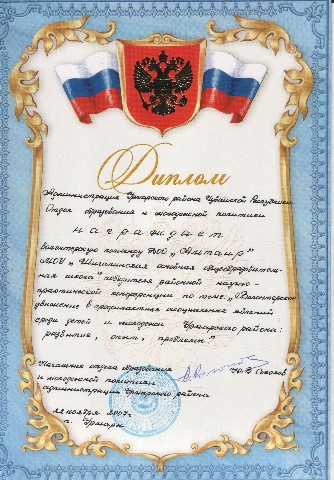 Диплом
Администрация Урмарского района Чувашской Республики
Отдел образования и молодежной политики
награждает
волонтерскую команду ТОО „Антаир"
МОУ „Шигалинская основная общеобразователь-
ная школа" победителя районной научно-
практической конференции по теме: „Волонтерское
движение в профилактике асоциальных явлений
среди детей и молодежи Урмарского района:
развитие, опыт, проблемы."
Начальник отдела образования
и молодежной политики
администрации Урмарского района
22 ноября 2007г.
п. Урмары